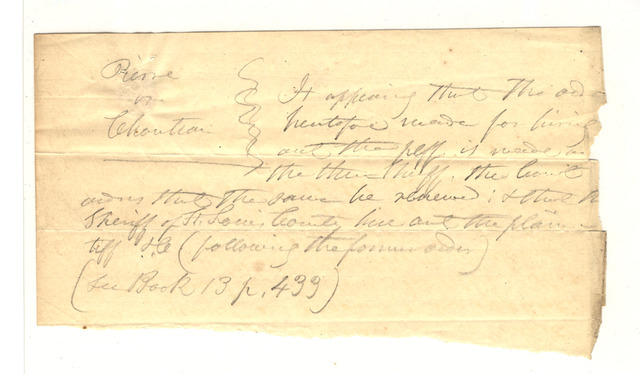 Pierre
vs
Chouteau
It appearing that the order
heretofore made for hiring
out the plff. is made to
the then Sheriff, the Court
orders that the same be renewed; & that the
Sheriff of St. Louis County hire out the plain-
tiff &c (following the former order)
(See Book 13 p. 439)